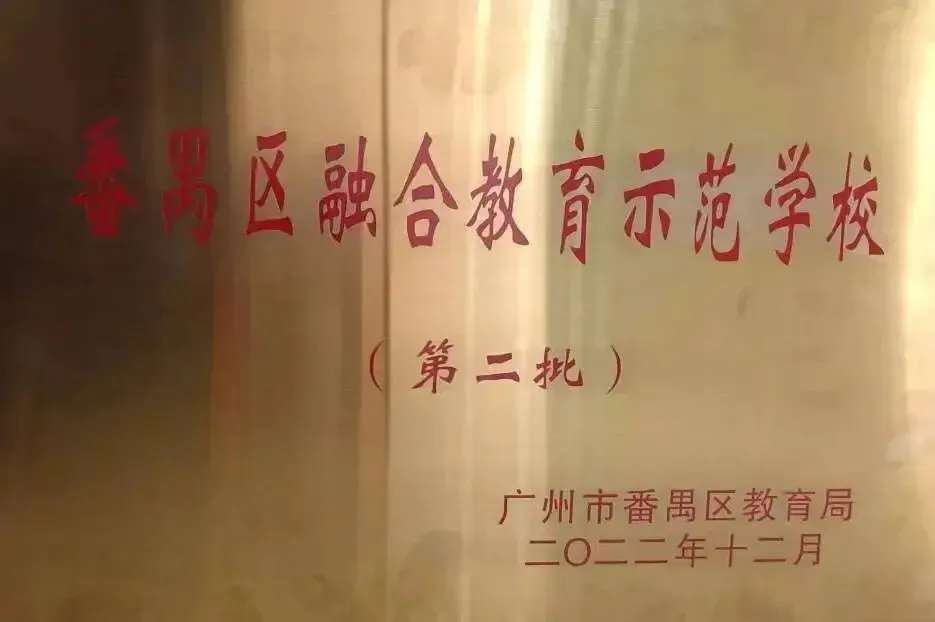 番禺区融合教育示范学校
（第二批）
广州市番禺区教育局
二〇二二年十二月